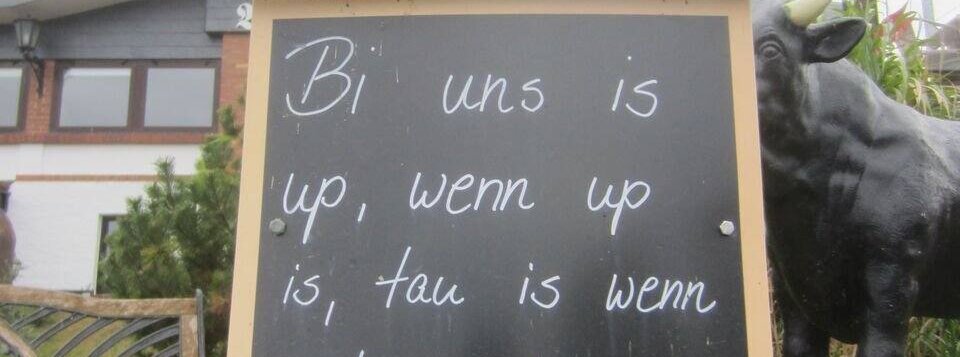 Bi uns is
up, wenn up
is, tau is wenn